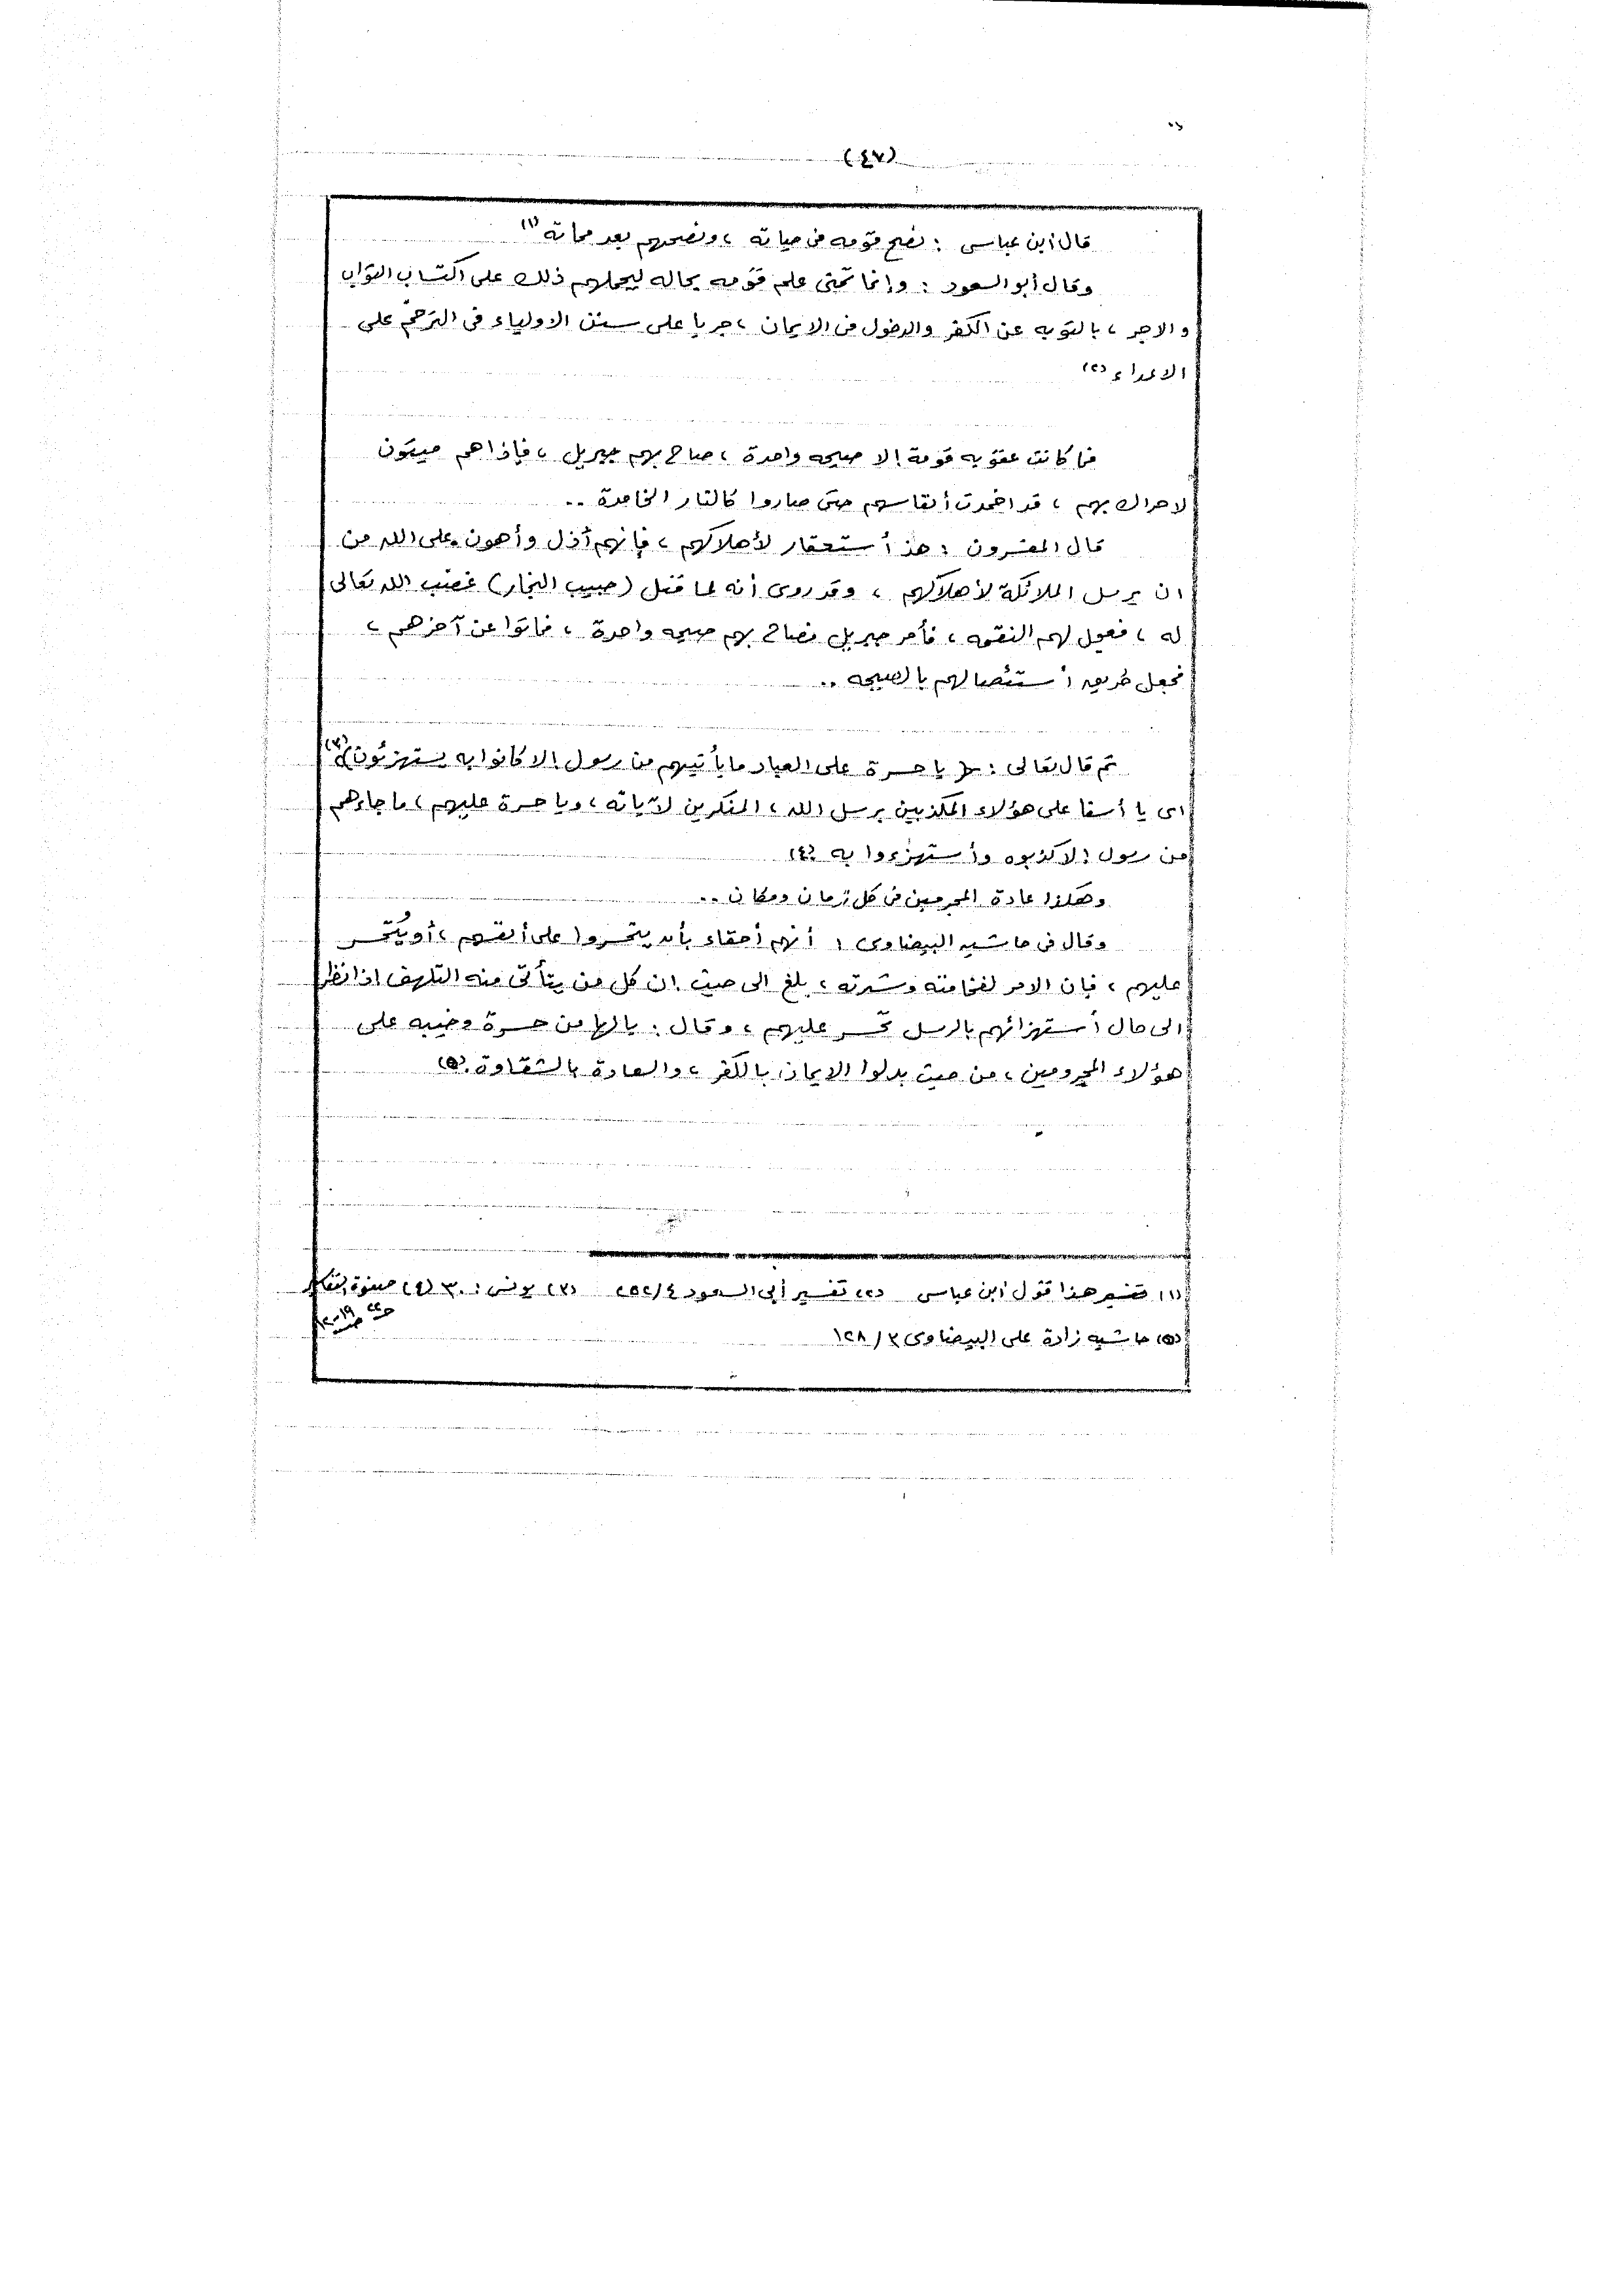 (٤٧)
قال أبن عباس : نصح قومه فى حياته ، ونصحهم بعد مماته (١)
وقال أبو السعود : وإنما تمنى علم قومه بحاله ليحملهم ذلك على اكتساب الثواب
والاجر ، بالتوبه عن الكفر والدخول فى الايمان ، جريا على سنن الاولياء فى الترحم على
الاعداء (٢)
فما كانت عقوبه قومة إلا صيحه واحدة ، صاح بهم جبريل ، فإذا هم ميتون
لا حراك بهم ، قد اخمدت أنفاسهم حتى صاروا كالنار الخامدة ..
قال المفسرون : هذ أستحقار لأهلاكهم ، فإنهم أذل وأهون على الله من
ان يرسل الملائكة لأهلاكهم ، وقد روى أنه لما قتل (حبيب النجار) غضب الله تعالى
له ، فعجل لهم النقمه ، فأمر جبريل فصاح بهم صيحه واحدة ، فماتوا عن آخرهم ،
فجعل طريق أستئصالهم بالصيحه ..
ثم قال تعالى : ﴿ يا حسرة على العباد ما يأتيهم من رسول إلا كانوا به يستهزئون ﴾ (٣)
اى يا أسفا على هؤلاء المكذبين برسل الله ، المنكرين لآياته ، ويا حسرة عليهم ، ما جاءهم
من رسول إلا كذبوه وأستهزءوا به (٤)
وهكذا عادة المجرمين فى كل زمان ومكان ..
وقال فى حاشيه البيضاوى : أنهم أحقاء بأن يتحسروا على أنفسهم ، أو يُتحسر
عليهم ، فإن الامر لفخامته وشدته ، بلغ الى حيث ان كل من يتأتى منه التلهف اذا نظر
الى حال أستهزائهم بالرسل تحسر عليهم ، وقال : يالها من حسرة وخيبه على
هؤلاء المحرومين ، من حيث بدلوا الايمان بالكفر ، والسعادة بالشقاوة . (٥)
(١) تفسير هذا قول ابن عباس (٢) تفسير أبى السعود ٤/٢٥٢ (٣) يونس : ٣٠ (٤) صفوة التفاسير
(٥) حاشيه زادة على البيضاوى ٣/١٢٨